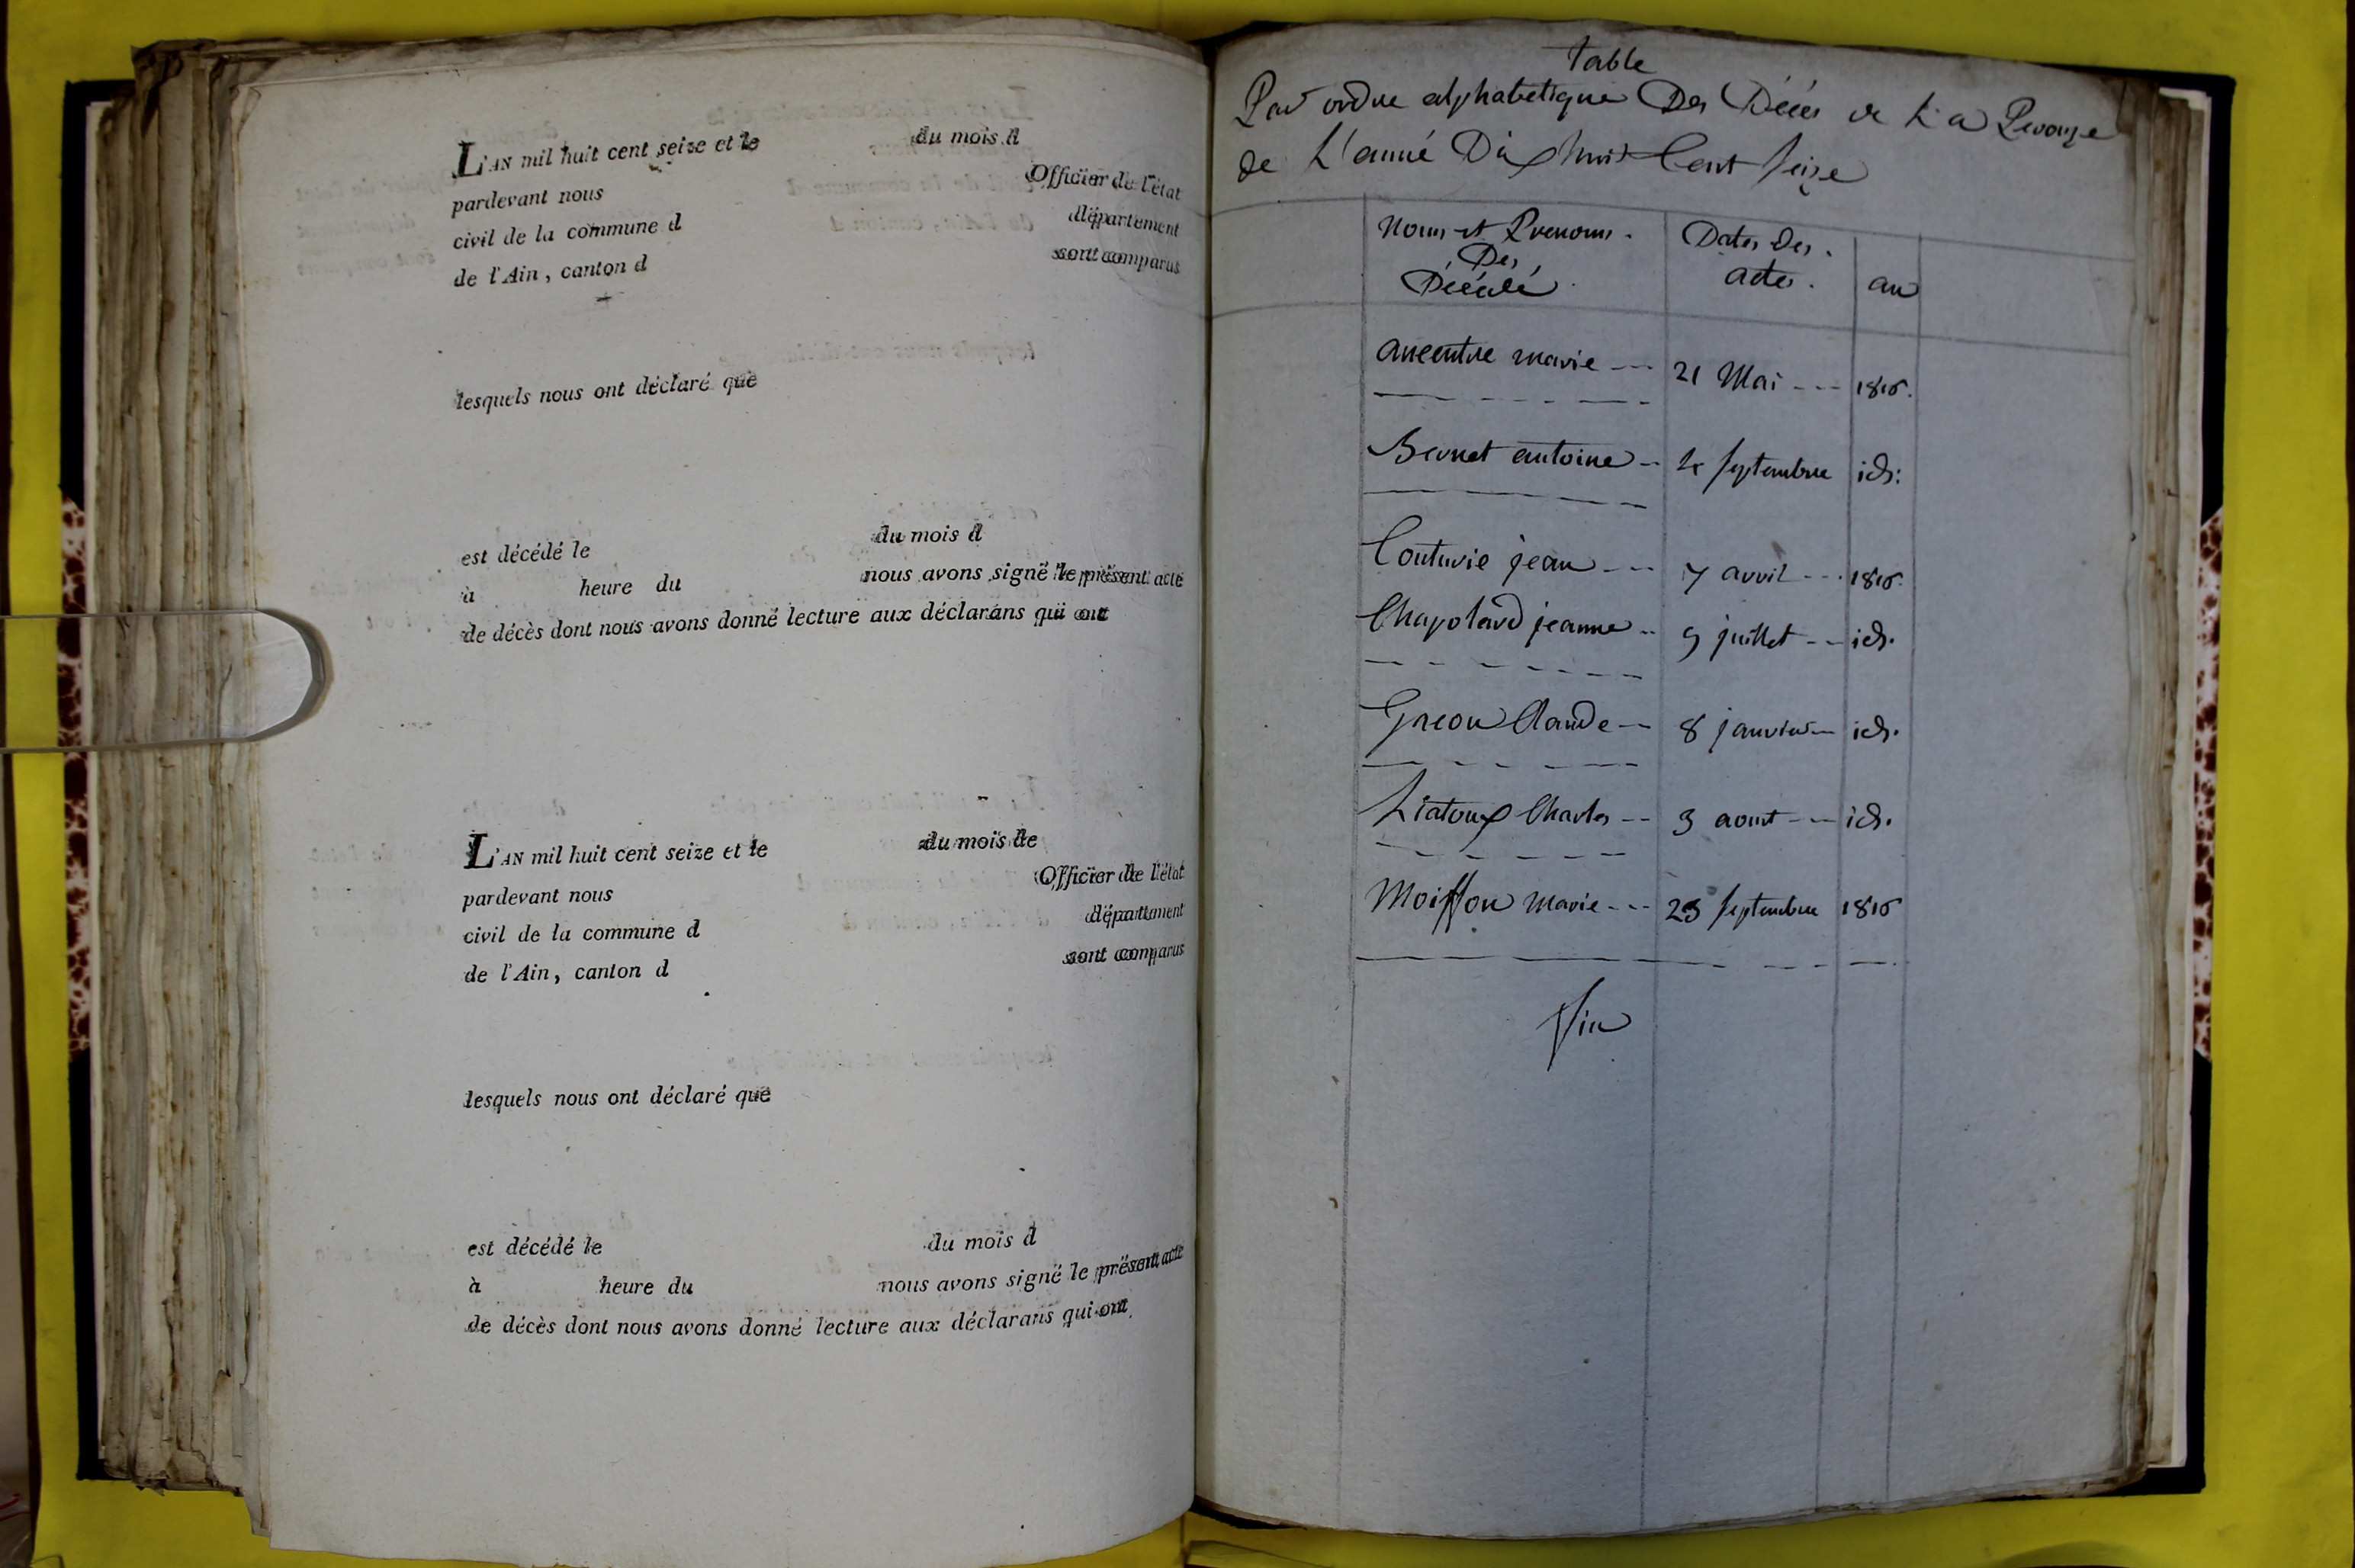 L'AN mil huit cent seize et le du mois d
pardevant nous Officier de l'état
civil de la commune d département
de l'Ain, canton d sont comparus
lesquels nous ont déclaré que
est décédé le du mois d
à heure du nous avons signé le présent acte
de décès dont nous avons donné lecture aux déclarans qui ont
L'AN mil huit cent seize et le du mois de
pardevant nous Officier de l'état
civil de la commune d département
de l'Ain, canton d sont comparus
lesquels nous ont déclaré que
est décédé le du mois d
à heure du nous avons signé le présent acte
de décès dont nous avons donné lecture aux déclarans qui ont
Table
Par ordre alphabetique Des Décés de La Perouse
de L'année Dix huit Cent Seize
Noms et Prenoms. Dates Des.
Des actes. an
Décédé.
ancentre marie --- 21 Mai --- 1816.
Bernet antoine -- 4 septembre id:
Couturie jean --- 7 avril --- 1816.
Chapolard jeanne -- 9 juillet -- id.
Greon Claude -- 8 janvier -- id.
Liatoux Charles -- 3 aout -- id.
Moisson marie --- 23 septembre 1816
fin